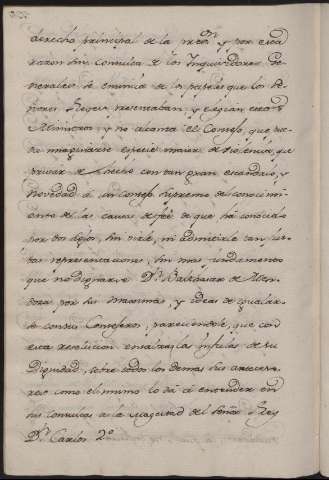 derecho principal de la mrõn, y por esta
razon sin Consulta de los Inquisidores Ge-
nerales se eminia de los papeles que los Se-
ñores Reyes presentaban, y elegian estos
Ministros y no alcanza el Consejo, que pue-
da imaginarse especie maior de violencia, que
privar de hecho con tan gran escandalo, y
novedad à un Consejo Supremo del conocimi-
ento de las causas de feè de que hà conocido
por dos siglos, sin oirle, ni admitirle tan jus-
tas representaciones, sin mas fundamento
que no dignarse Dn. Balthasar de Men-
doza por sus maximas, y ideas de igualar-
se con sus Consejeros, pareciendole, que con
esta resolucion ensalza las infulas de su
Dignidad, sobre todos los demas sus anteceso-
res como el mismo lo dà à entender en
sus Consultas a la Magestad del Señor Rey
Dn. Carlos 2º